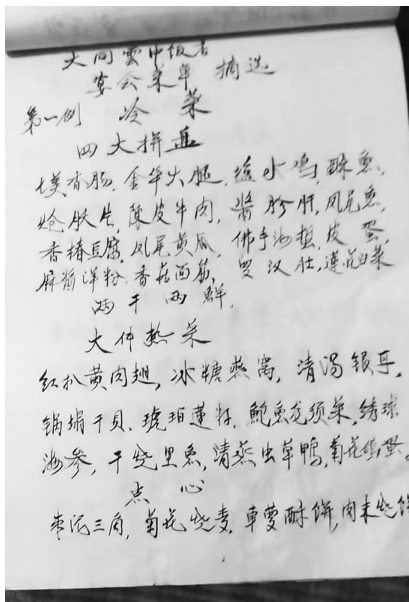 大同雲中饭店
宴会菜单 摘选
第一例 冷菜
四大拼盘
香肠, 金华火腿, 盐水鸡, 酥魚,
炝肽片, 陳皮牛肉, 酱肝, 凤尾魚,
香椿豆腐, 凤尾黄瓜, 佛手海蜇, 皮蛋,
麻酱洋粉, 香菇面筋, 罗汉肚, 莲花白菜
两干两鲜.
大件熱菜
红扒黄肉翅, 冰糖燕窝, 清汤银耳,
锅塌干贝, 琥珀莲籽, 鲍魚龙须菜, 绣球
海参, 干烧里魚, 清蒸虫草鸭, 菊花
点心
枣泥三角, 菊花烧麦, 酥饼, 肉末烧饼